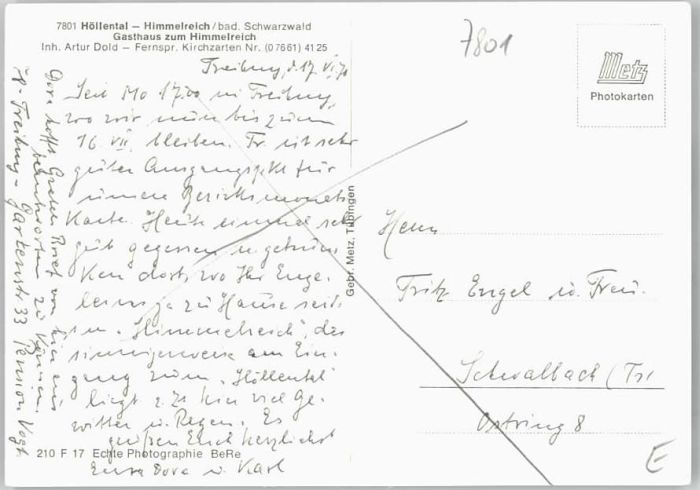 7801 Höllental – Himmelreich/bad. Schwarzwald
Gasthaus zum Himmelreich
Inh. Artur Dold – Fernspr. Kirchzarten Nr. (0 76 61) 41 25
7801
Metz
Photokarten
Freiburg, d. 17. VI.
Seit Mo 17.00 in Freiburg,
wo wir nun bis zum
16. VII. bleiben. Fr. ist sehr
guter Ausgangspkt für
unsere Bezirksmonats
Karte. Heute einmal sehr
gut gegessen u. getrun
ken dort, wo Ihr Enge-
lein ja zu Hause seid:
im „Himmelreich", das
sinnigerweise am Ein-
gang zum „Höllental"
liegt z. Zt. hier viel Ge-
witter u. Regen. Es
grüßen Euch herzlichst
Eure Dora u. Karl
Dora hofft Gretes Brief von hier aus
beantworten zu können.
Freiburg - Gartenstr 33 Pension Vogt
Gebr. Metz, Tübingen
Herrn
Fritz Engel u. Frau
Schwalbach (Ts)
Ostring 8
E
210 F 17 Echte Photographie BeRe